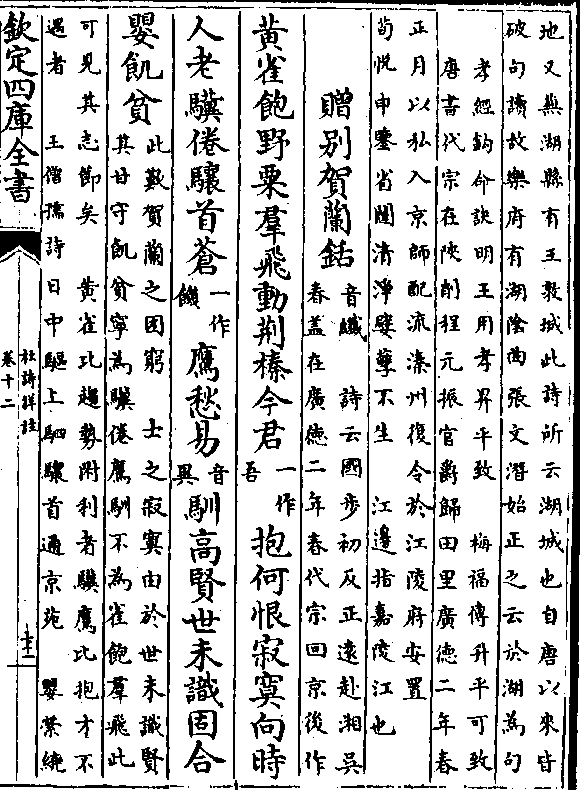 地又蕪湖縣有王敦城此詩所云湖城也自唐以來皆
破句讀故樂府有湖陰曲張文潛始正之云於湖為句
孝經鈎命訣明王用孝昇平致　梅福傳升平可致
唐書代宗在陜削程元振官爵歸田里廣德二年春
正月以私入京師配流溱州復令於江陵府安置
荀悅申鑒省闥清淨嬖孽不生　江邊指嘉陵江也
贈別賀蘭銛 音纖　詩云國步初反正遠赴湘吳
春蓋在廣德二年春代宗回京後作
黄雀飽野粟羣飛動荆榛今君一作吾抱何恨寂寞向時
人老驥倦驤首蒼一作饑鷹愁易音異馴高賢世未識固合
嬰飢貧 此歎賀蘭之困窮　士之寂寞由於世未識賢
其甘守飢貧寧為驥倦鷹馴不為雀飽羣飛此
可見其志節矣　黄雀比趨勢附利者驥鷹比抱才不
遇者　王僧孺詩日中驅上駟驤首通京苑　嬰縈繞
欽定四庫全書
杜詩詳註
卷十二
十三